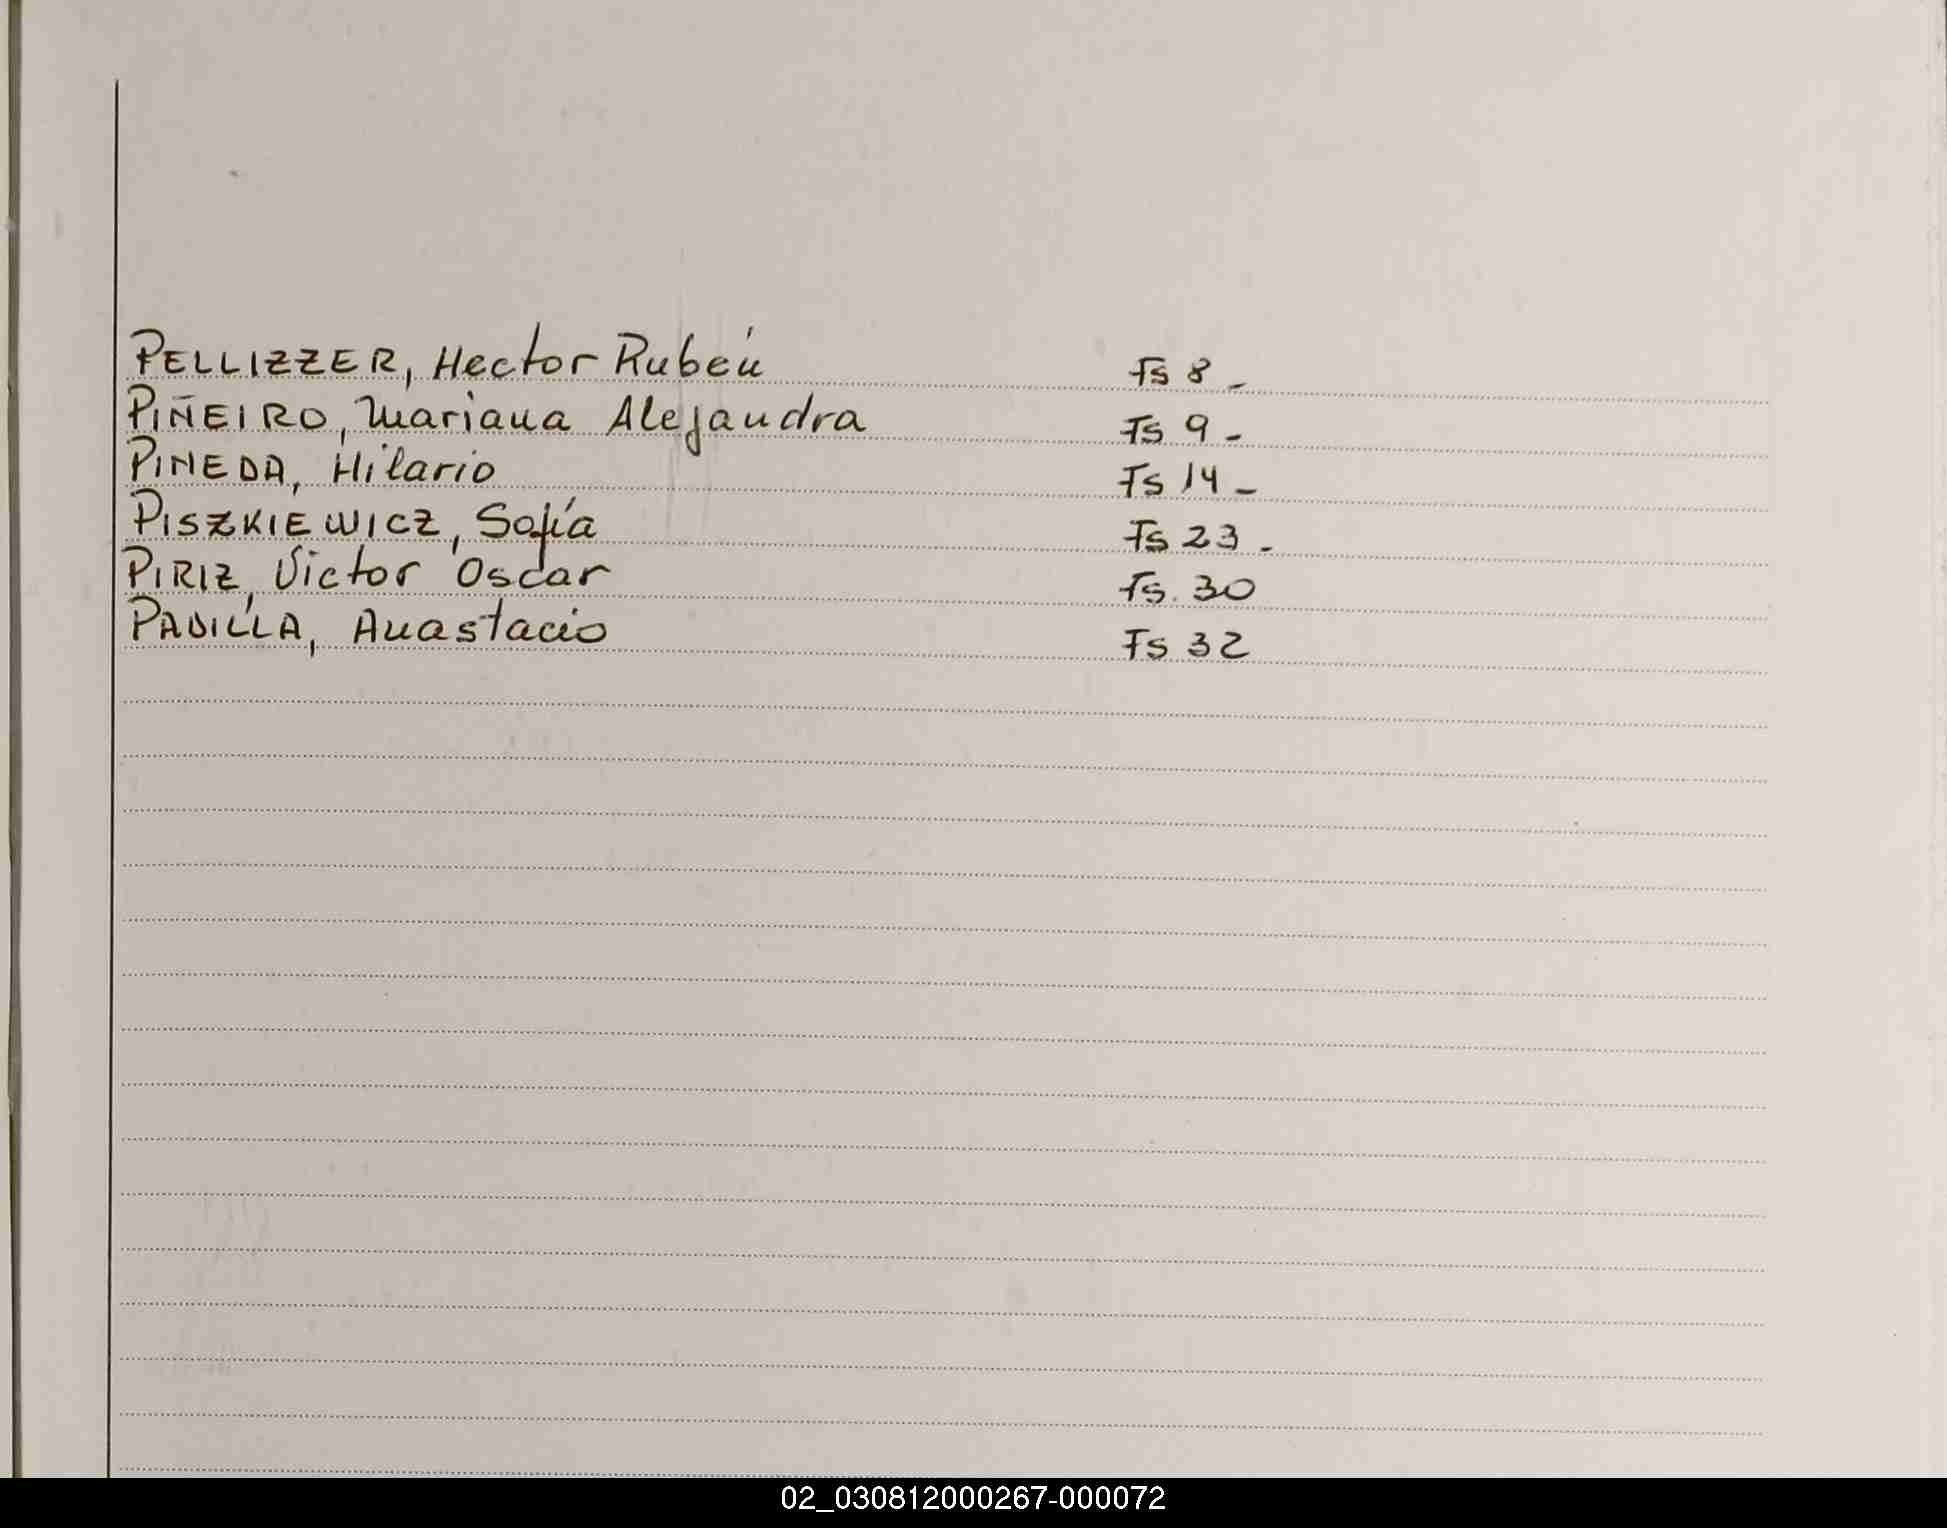 PELLIZZER, Hector Rubén Fs 8 -
PIÑEIRO, Mariana Alejandra Fs 9 -
PINEDA, Hilario Fs 14 -
PISZKIEWICZ, Sofía Fs 23 -
PIRIZ, Victor Oscar Fs. 30
PADILLA, Anastacio Fs 32
02_030812000267-000072